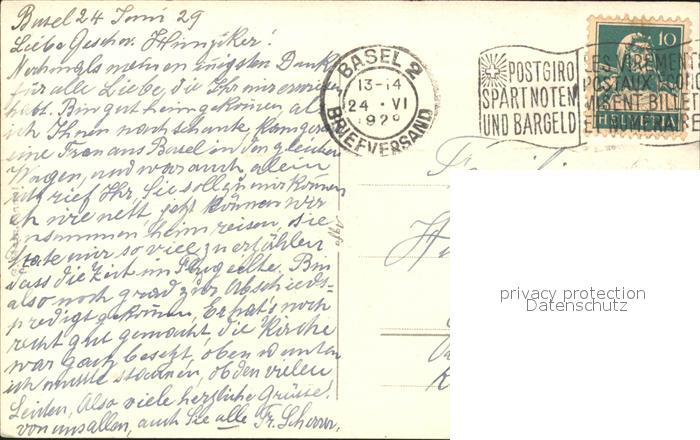 Basel 24 Juni 29
Liebe Geschw. Hunziker!
Nochmals meinen innigsten Dank
für alle Liebe, die Ihr mir erwiesen
habt. Bin gut heim gekommen, al
ich Ihnen nachschaute, kam gera
eine Frau aus Basel in den gleichen
Wagen, und war auch allein
rief Ihr, Sie soll zu mir kommen
wie nett, jetzt können wir
zusammen heim reisen, sie
hatte mir so viel zu erzählen
dass die Zeit im Flug eilte. Bin
also noch grad zur Abschieds-
predigt gekommen. Er hat's noch
recht gut gemacht, die Kirche
war ganz besetzt, oben und unten
ich musste staunen, ob den vielen
Leuten. Also viele herzliche Grüsse!
von uns allen, auch Sie alle Fr. Scherrer.
BASEL 2
13-14
24. VI
1929
BRIEFVERSAND
POSTGIRO
SPART NOTEN
UND BARGELD
LES VIREMENTS
POSTAUX
BILLETS
ET
10
HELVETIA
privacy protection
Datenschutz